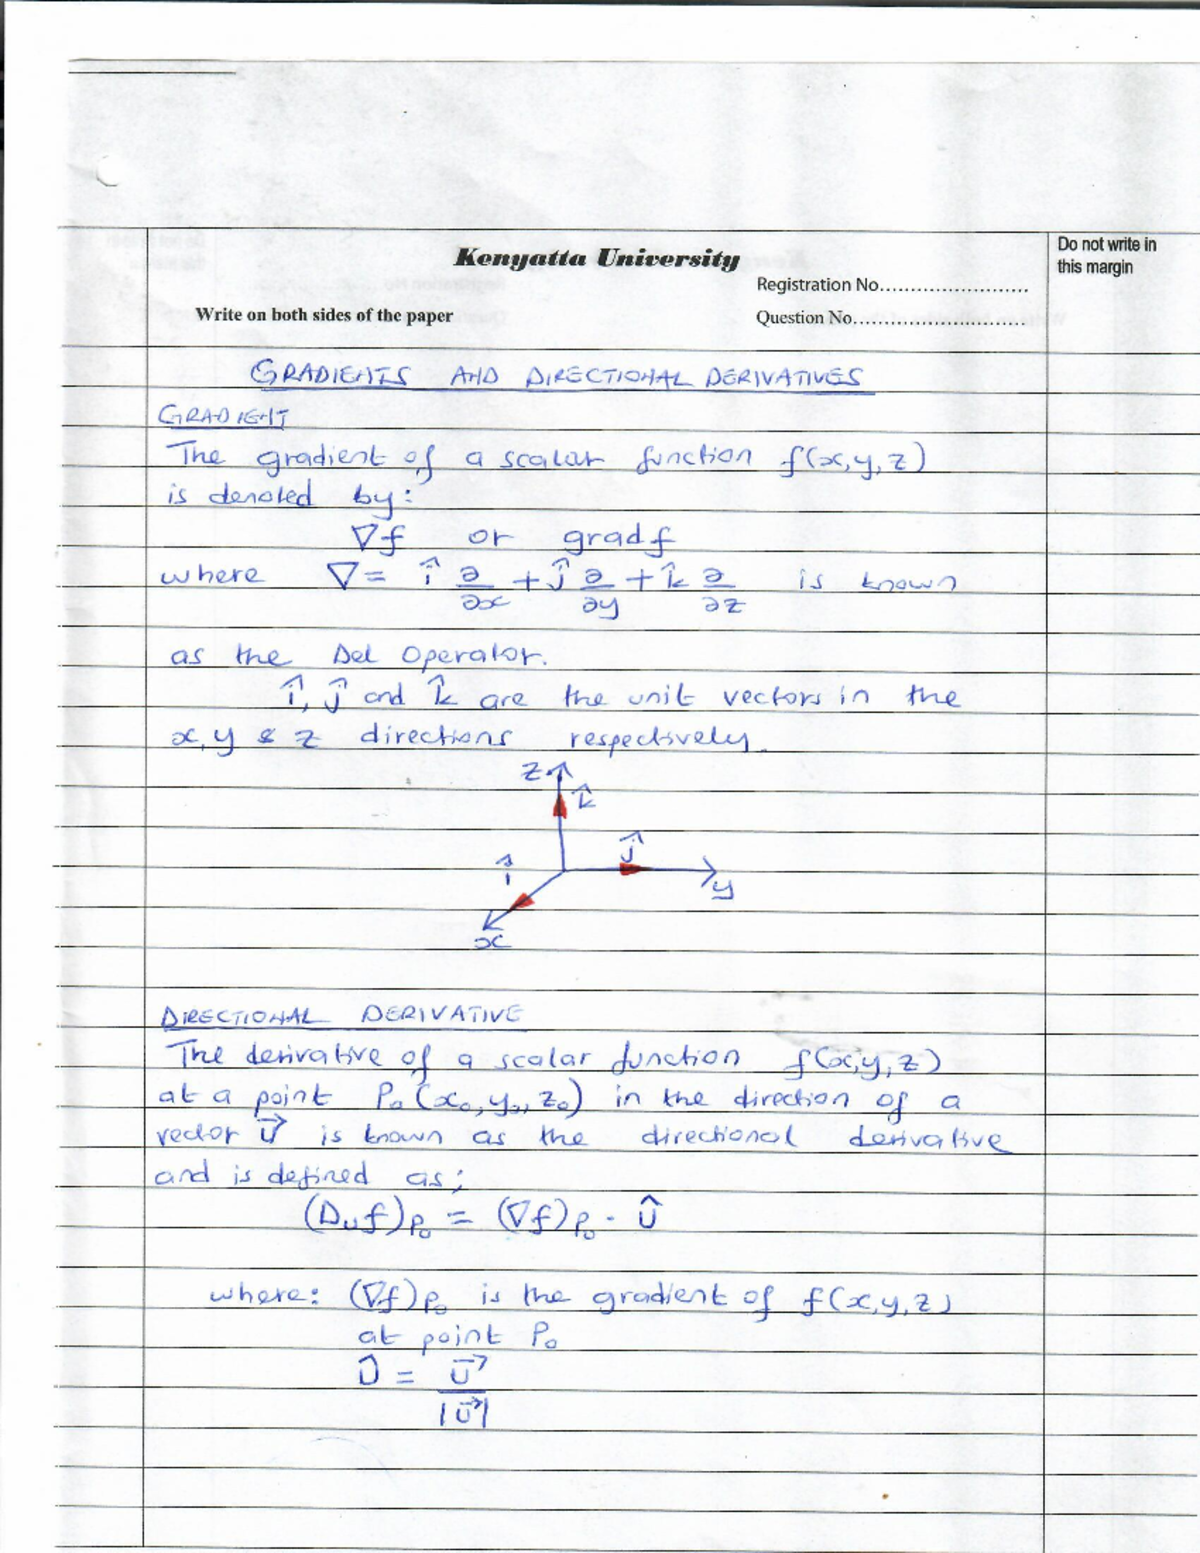 Kenyatta University
Do not write in
this margin
Registration No........................
Write on both sides of the paper
Question No............................
GRADIENTS AND DIRECTIONAL DERIVATIVES
GRADIENT
The gradient of a scalar function f(x,y,z)
is denoted by:
∇f or grad f
where ∇ = î ∂/∂x + ĵ ∂/∂y + k̂ ∂/∂z is known
as the Del Operator.
î, ĵ and k̂ are the unit vectors in the
x, y & z directions respectively.
z
k̂
ĵ
î
y
x
DIRECTIONAL DERIVATIVE
The derivative of a scalar function f(x,y,z)
at a point P₀ (x₀, y₀, z₀) in the direction of a
vector u⃗ is known as the directional derivative
and is defined as;
(Duf)P₀ = (∇f)P₀ · û
where: (∇f)P₀ is the gradient of f(x,y,z)
at point P₀
û = u⃗/|u⃗|